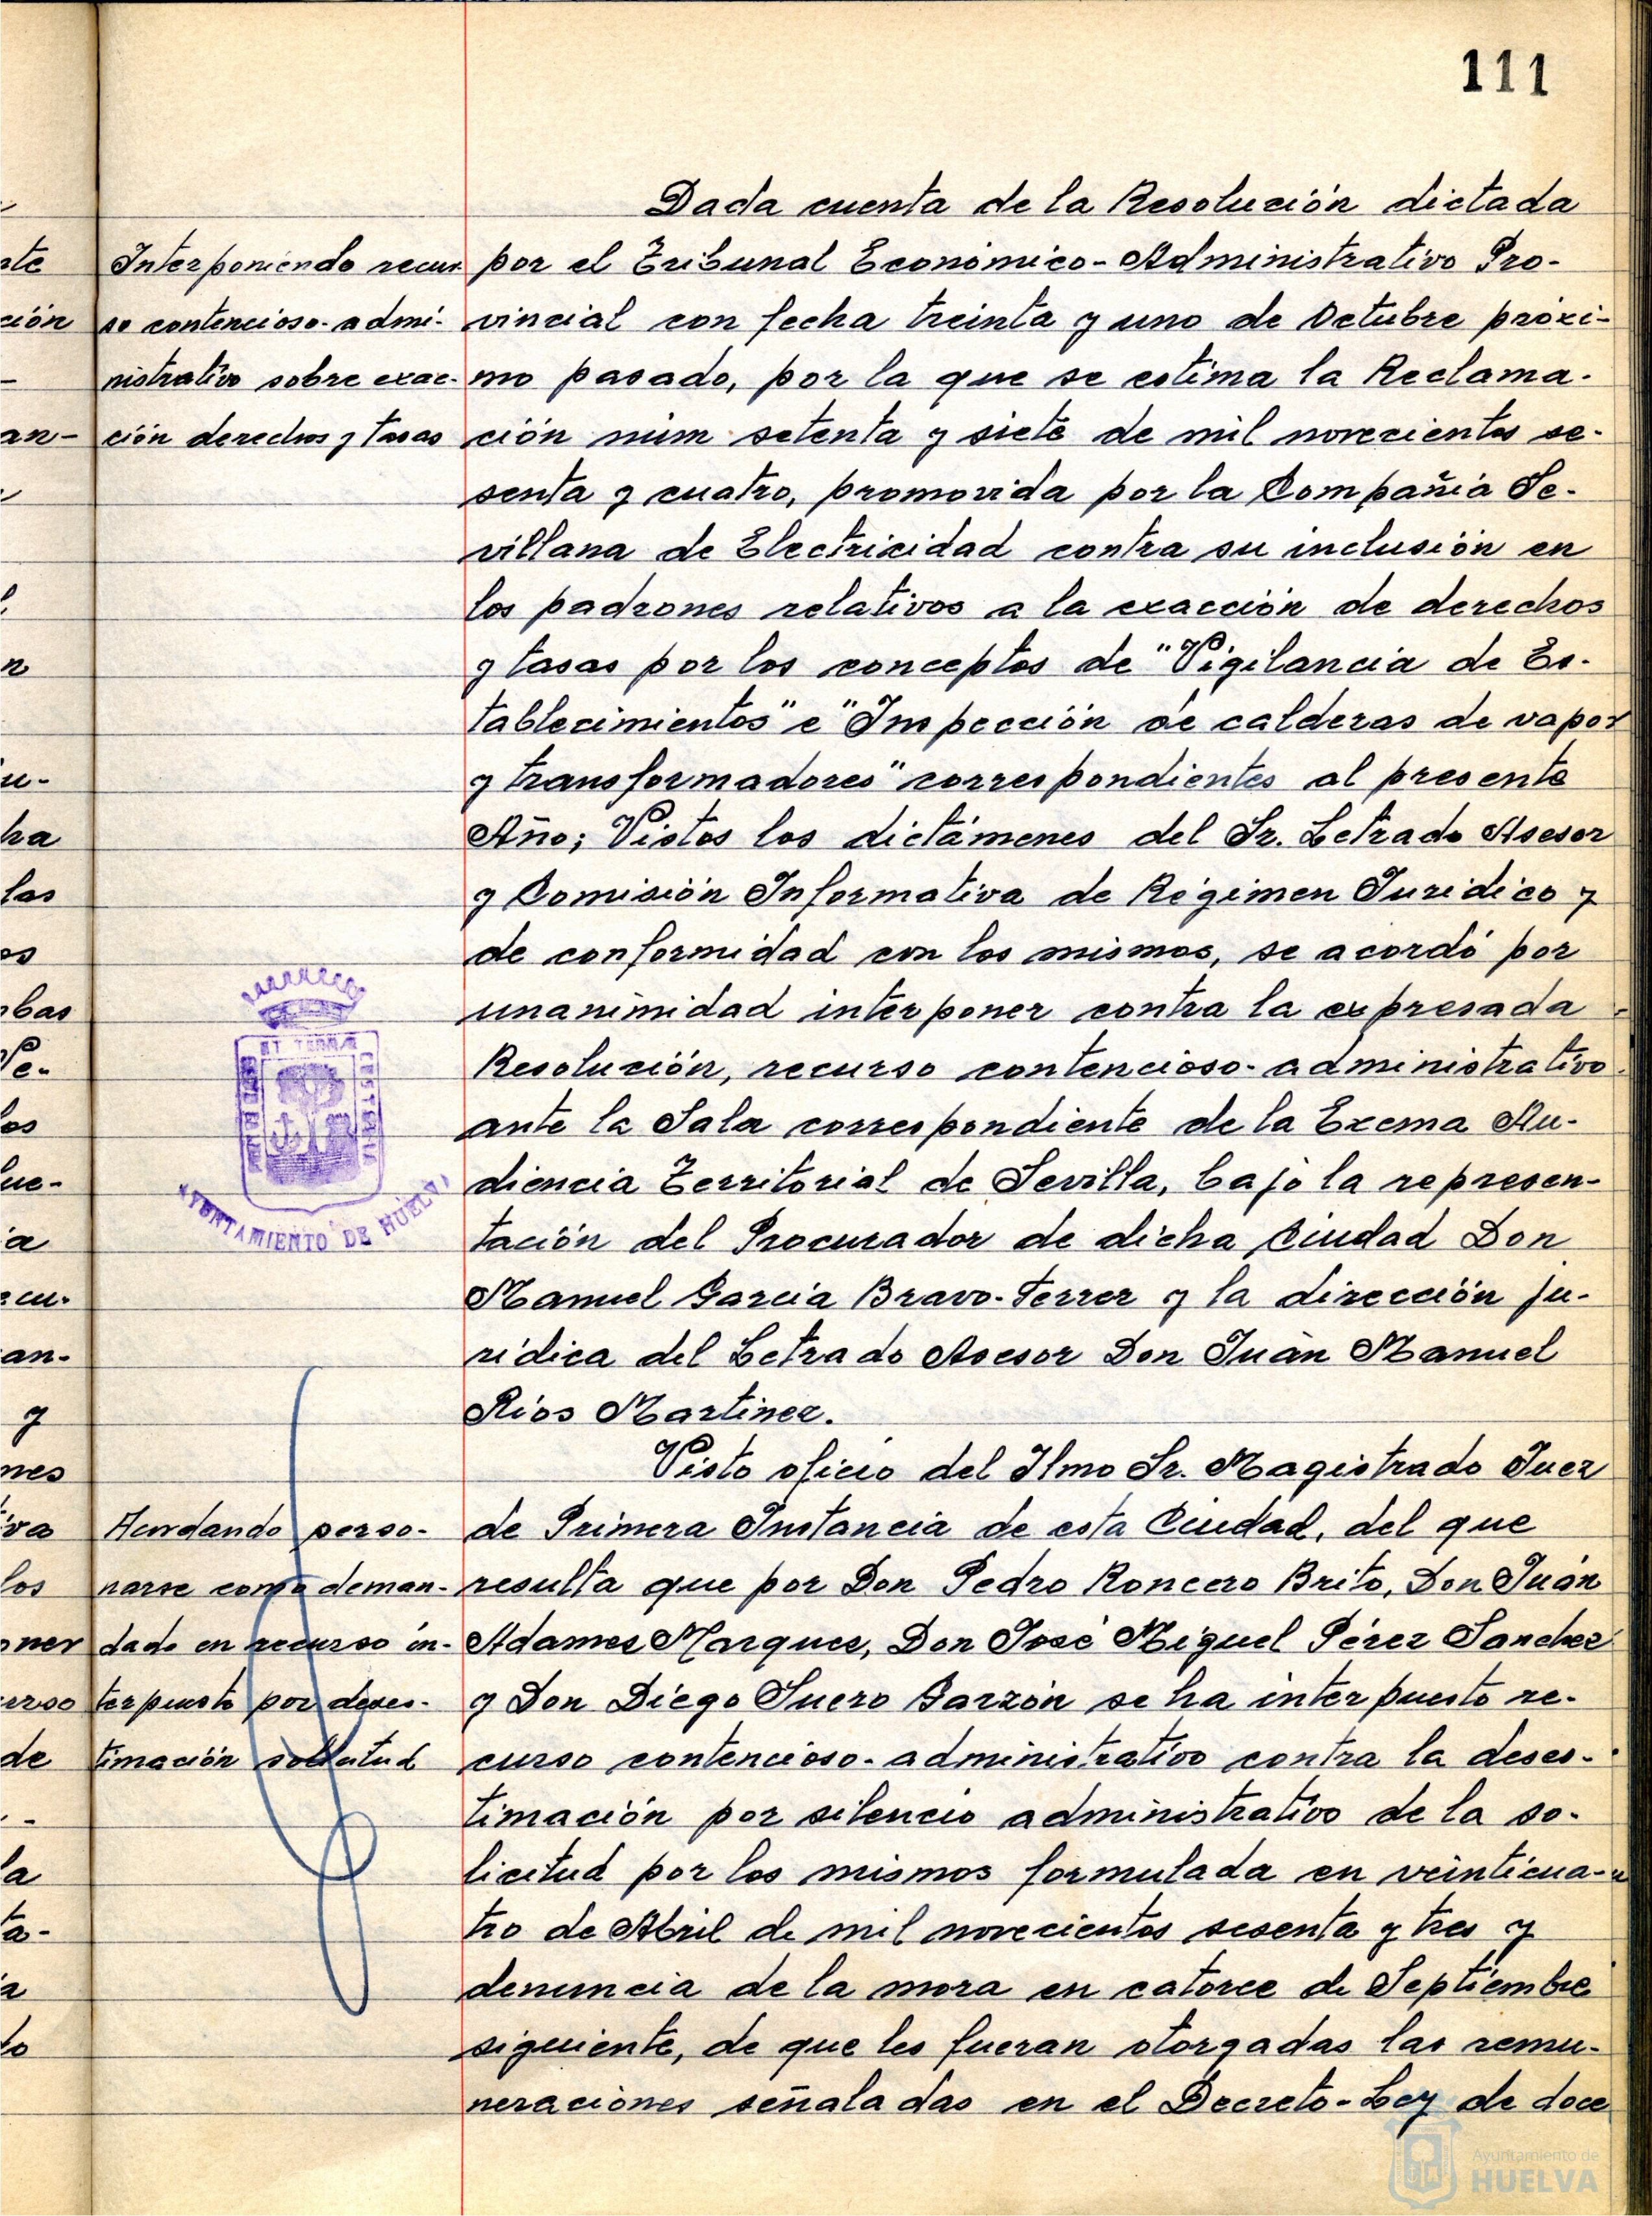 111
Interponiendo recur
so contencioso-admi-
nistrativo sobre exac-
ción derechos y tasas
Dada cuenta de la Resolución dictada
por el Tribunal Económico-Administrativo Pro-
vincial con fecha treinta y uno de Octubre próxi-
mo pasado, por la que se estima la Reclama-
ción núm. setenta y siete de mil novecientos se-
senta y cuatro, promovida por la Compañia Se-
villana de Electricidad contra su inclusión en
los padrones relativos a la exacción de derechos
y tasas por los conceptos de "Vigilancia de Es-
tablecimientos" e "Inspección de calderas de vapor
y transformadores" correspondientes al presente
Año; Vistos los dictámenes del Sr. Letrado Asesor
y Comisión Informativa de Régimen Juridico y
de conformidad con los mismos, se acordó por
unanimidad interponer contra la expresada
Resolución, recurso contencioso-administrativo
ante la Sala correspondiente de la Excma Au-
diencia Territorial de Sevilla, bajo la represen-
tación del Procurador de dicha Ciudad Don
Manuel Garcia Bravo-Ferrer y la dirección ju-
ridica del Letrado Asesor Don Juan Manuel
Rios Martinez.
Acordando perso-
narse como deman-
dado en recurso in-
terpuesto por deses-
timación solicitud
Visto oficio del Ilmo Sr. Magistrado Juez
de Primera Instancia de esta Ciudad, del que
resulta que por Don Pedro Roncero Brito, Don Juan
Adames Marquez, Don José Miguel Pérez Sanchez
y Don Diego Suero Garzón se ha interpuesto re-
curso contencioso-administrativo contra la deses-
timación por silencio administrativo de la so-
licitud por los mismos formulada en veinticua-
tro de Abril de mil novecientos sesenta y tres y
denuncia de la mora en catorce de Septiembre
siguiente, de que les fueran otorgadas las remu-
neraciones señaladas en el Decreto-Ley de doce
AYUNTAMIENTO DE HUELVA
Ayuntamiento de
HUELVA